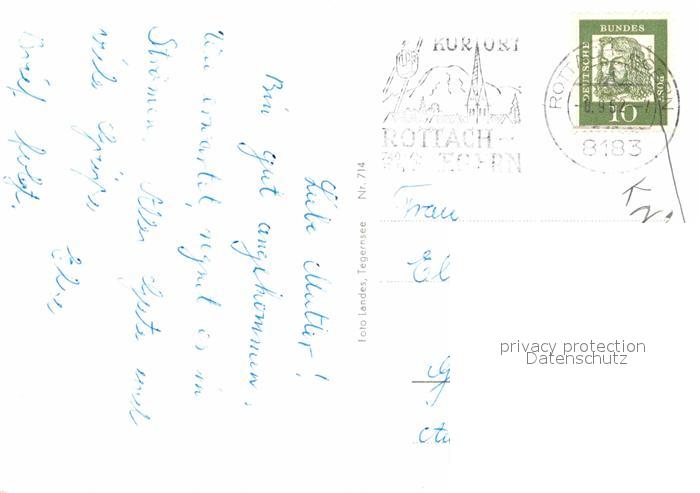 Liebe Mutter!
Bin gut angekommen.
Wie erwartet, regnet es in
Strömen. Alles Gute und
viele Grüße,
Brief folgt.
Foto Landes, Tegernsee Nr. 714
KURORT
ROTTACH-
EGERN
DEUTSCHE
BUNDES
POST
10
8183
Frau
El
privacy protection
Datenschutz